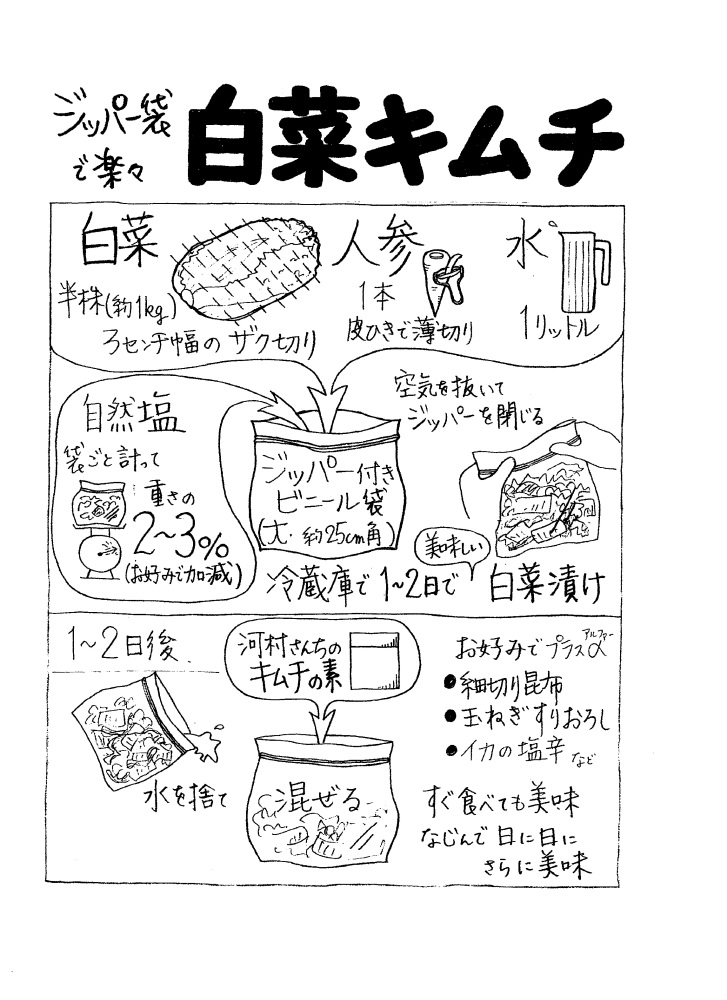 ジッパー袋
で楽々
白菜キムチ
白菜
半株(約1kg)
3センチ幅の ザク切り
人参
1本
皮ひきで薄切り
水
1リットル
自然塩
袋ごと計って
重さの
2〜3%
(お好みで加減)
ジッパー付き
ビニール袋
(大・約25cm角)
空気を抜いて
ジッパーを閉じる
美味しい
冷蔵庫で 1〜2日で 白菜漬け
1〜2日後
水を捨て
河村さんちの
キムチの素
混ぜる
お好みで プラスα
アルファー
●細切り昆布
●玉ねぎすりおろし
●イカの塩辛 など
すぐ食べても美味
なじんで 日に日に
さらに美味